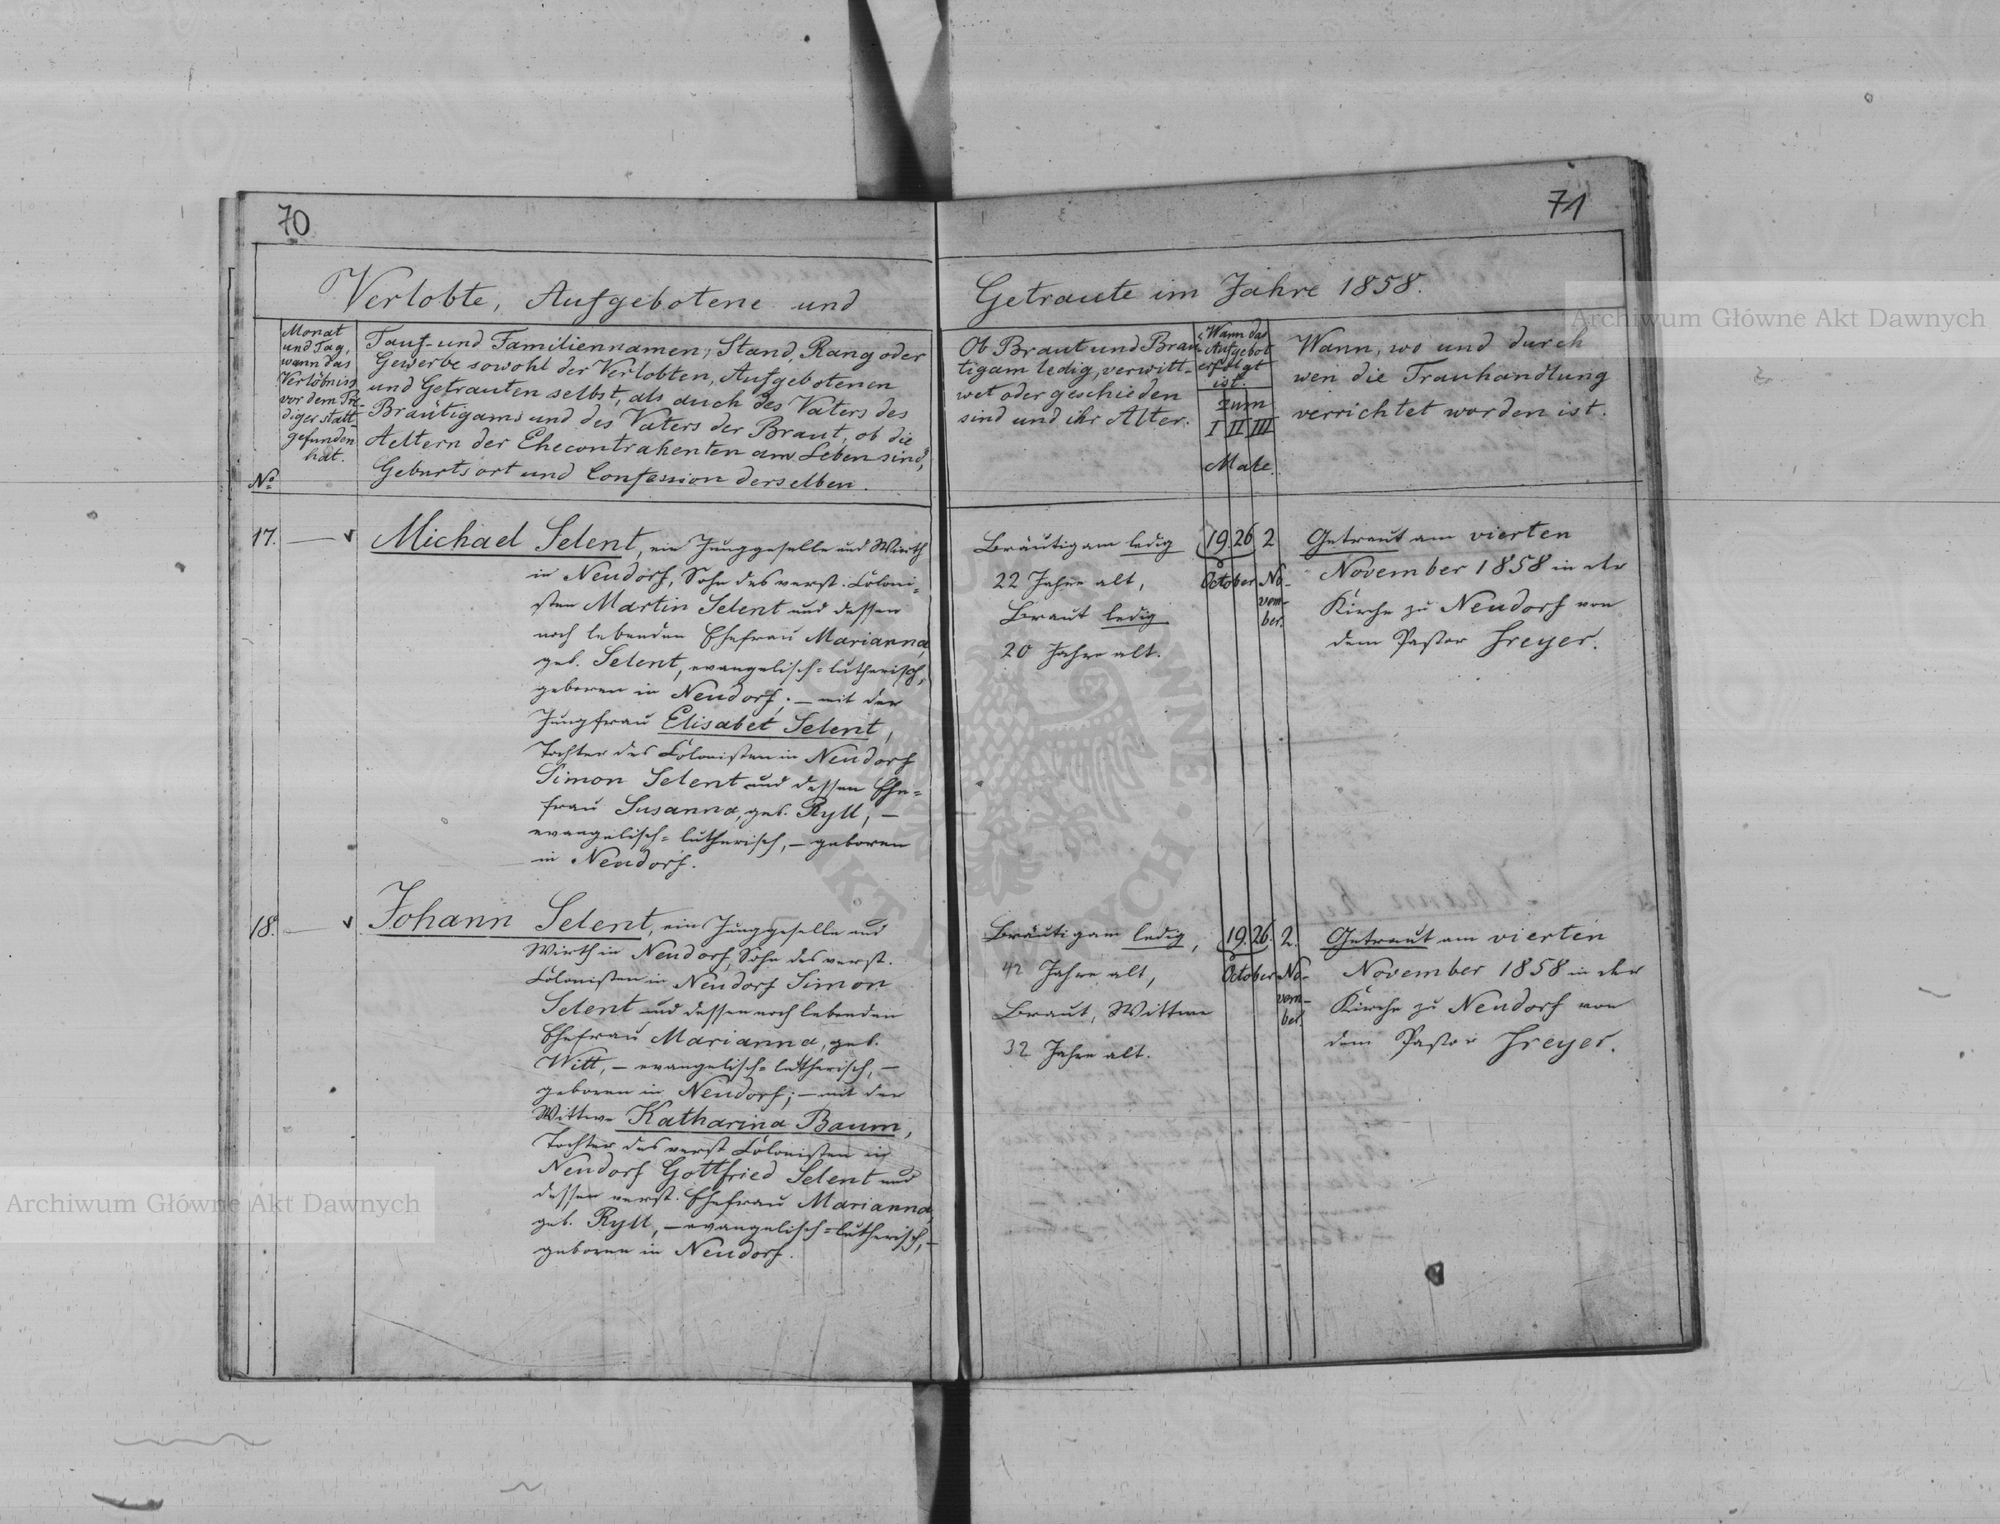 70
71
Verlobte, Aufgebotene und
Getraute im Jahre 1858.
No
Monat
und Tag,
wann das
Verlöbniss
vor dem Pre-
diger statt-
gefunden
hat.
Tauf- und Familiennamen, Stand, Rang oder
Gewerbe sowohl der Verlobten, Aufgebotenen
und Getrauten selbst, als auch des Vaters des
Bräutigams und des Vaters der Braut, ob die
Aeltern der Ehecontrahenten am Leben sind,
Geburtsort und Confession derselben.
Ob Braut und Bräu-
tigam ledig, verwitt-
wet oder geschieden
sind und ihr Alter.
Wann das
Aufgebot
erfolgt
ist.
zum
I II III
Male.
Wann, wo und durch
wen die Trauhandlung
verrichtet worden ist.
17.
Michael Selent, ein Junggeselle und Wirth
in Neudorf, Sohn des verst. Coloni-
sten Martin Selent und dessen
noch lebenden Ehefrau Marianna,
geb. Selent, evangelisch-lutherisch,
geboren in Neudorf; – mit der
Jungfrau Elisabet Selent,
Tochter des Colonisten in Neudorf
Simon Selent und dessen Ehe-
frau Susanna, geb. Ryll, –
evangelisch-lutherisch, – geboren
in Neudorf.
Bräutigam ledig
22 Jahre alt,
Braut ledig
20 Jahre alt.
19. 26 2
October No-
vem-
ber.
Getraut am vierten
November 1858 in der
Kirche zu Neudorf von
dem Pastor Freyer.
18.
Johann Selent, ein Junggeselle und
Wirth in Neudorf, Sohn des verst.
Colonisten in Neudorf Simon
Selent und dessen noch lebenden
Ehefrau Marianna, geb.
Witt, – evangelisch-lutherisch, –
geboren in Neudorf; – mit der
Wittwe Katharina Baum,
Tochter des verst Colonisten in
Neudorf Gottfried Selent und
dessen verst. Ehefrau Marianna,
geb. Ryll, – evangelisch-lutherisch, –
geboren in Neudorf.
Bräutigam ledig,
42 Jahre alt,
Braut, Wittwe
32 Jahre alt.
19. 26. 2.
October No-
vem-
ber.
Getraut am vierten
November 1858 in der
Kirche zu Neudorf von
dem Pastor Freyer.
Archiwum Główne Akt Dawnych
Archiwum Główne Akt Dawnych